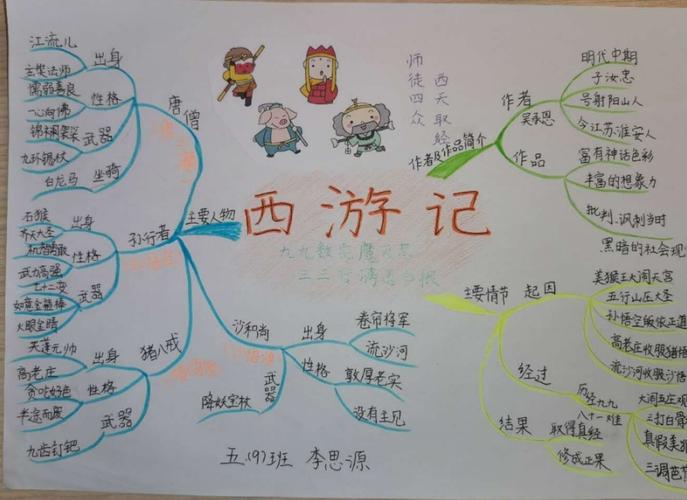 西游记
师徒四众
西天取经
九九数完魔灭尽
三三行满道归根
主要人物
唐僧
出身
江流儿
玄奘法师
性格
懦弱善良
一心向佛
武器
锦襕袈裟
九环锡杖
坐骑
白龙马
孙行者
出身
石猴
齐天大圣
性格
机智勇敢
武力高强
武器
七十二变
如意金箍棒
火眼金睛
猪八戒
出身
天蓬元帅
高老庄
性格
贪吃好色
半途而废
武器
九齿钉钯
沙和尚
出身
卷帘将军
流沙河
性格
敦厚老实
没有主见
武器
降妖宝杖
作者及作品简介
作者
吴承恩
明代中期
子汝忠
号射阳山人
今江苏淮安人
作品
富有神话色彩
丰富的想象力
批判、讽刺当时
黑暗的社会现
主要情节
起因
美猴王大闹天宫
五行山压大圣
孙悟空皈依正道
高老庄收服猪悟
流沙河收服沙悟
经过
历经九九
八十一难
大闹五庄观
三打白骨
真假美猴
三调芭蕉
结果
取得真经
修成正果
五(9)班 李思源